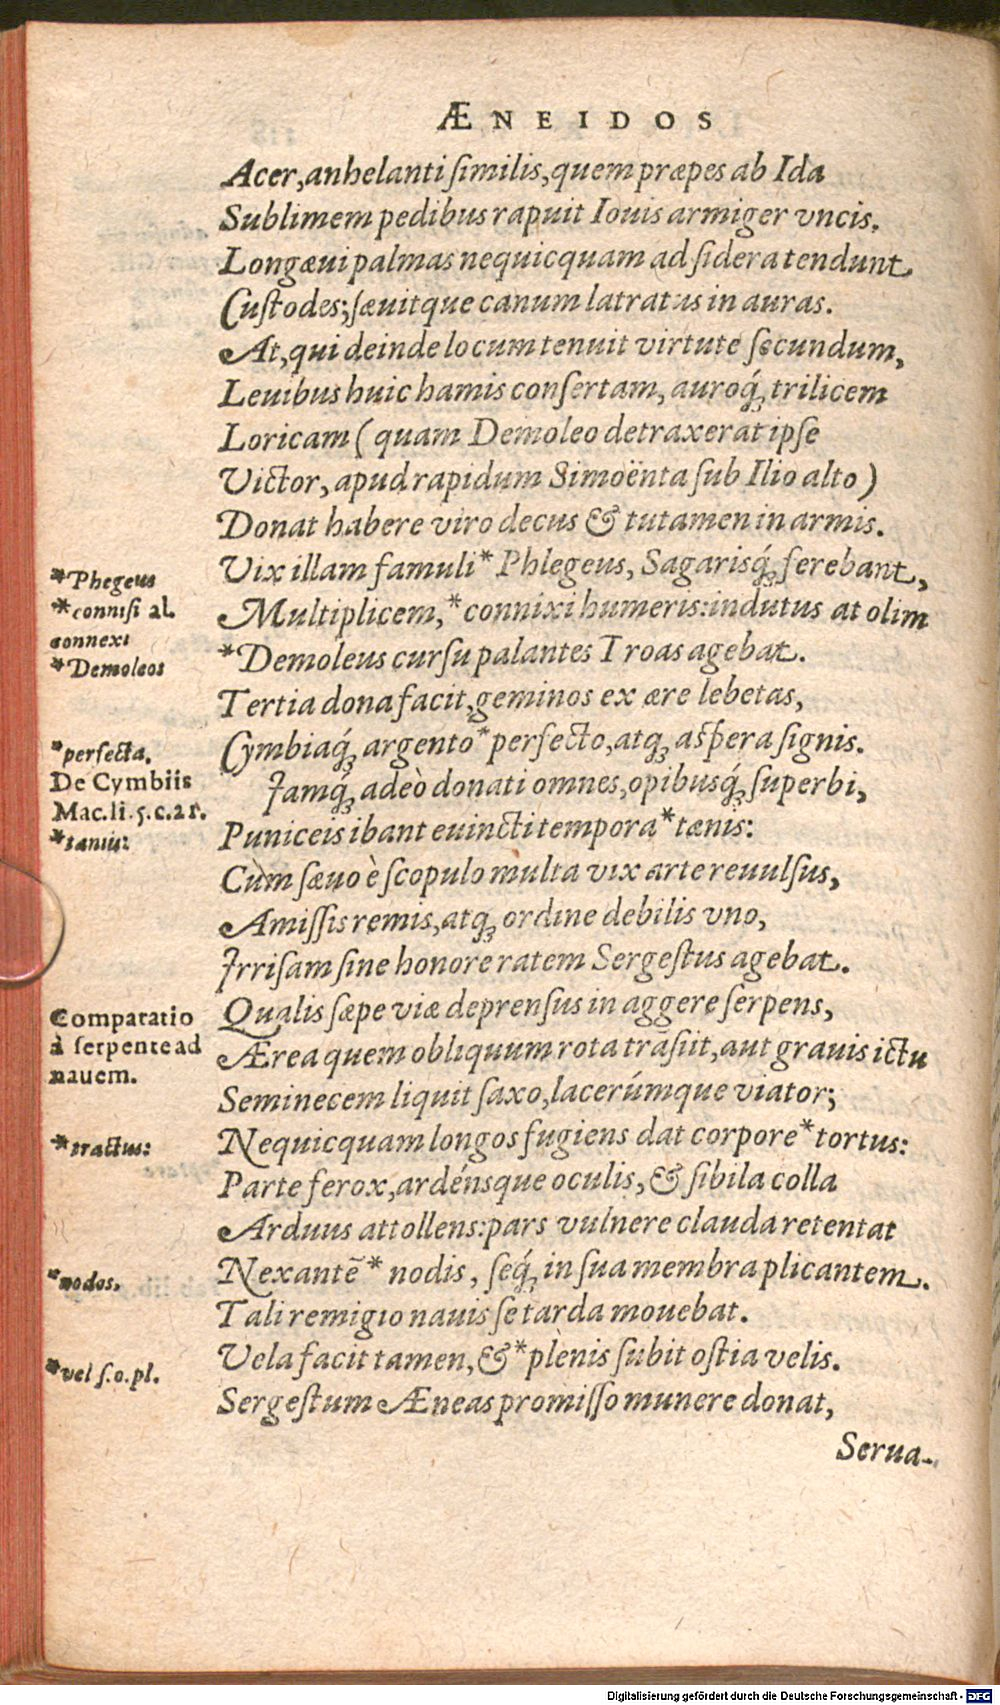 ÆNEIDOS
Acer, anhelanti ſimilis, quem præpes ab Ida
Sublimem pedibus rapuit Iouis armiger vncis.
Longæui palmas nequicquam ad ſidera tendunt
Cuſtodes; ſæuitque canum latratus in auras.
At, qui deinde locum tenuit virtute ſecundum,
Leuibus huic hamis conſertam, auroq́; trilicem
Loricam (quam Demoleo detraxerat ipſe
Victor, apud rapidum Simoënta ſub Ilio alto)
Donat habere viro decus & tutamen in armis.
*Phegeus
Vix illam famuli* Phlegeus, Sagarisq́; ferebant,
*conniſi al.
connexi
Multiplicem, *connixi humeris: indutus at olim
*Demoleos
*Demoleus curſu palantes Troas agebat.
Tertia dona facit, geminos ex ære lebetas,
*perfecta.
Cymbiaq́; argento *perfecto, atq; aſpera ſignis.
De Cymbiis
Mac.li.5.c.21.
Jamq́; adeò donati omnes, opibusq́; ſuperbi,
*taniis:
Puniceis ibant euincti tempora *tænis:
Cùm ſæuo è ſcopulo multa vix arte reuulſus,
Amiſſis remis, atq; ordine debilis vno,
Jrriſam ſine honore ratem Sergeſtus agebat.
Comparatio
à ſerpente ad
nauem.
Qualis ſæpe viæ deprenſus in aggere ſerpens,
Ærea quem obliquum rota trāſiit, aut grauis ictu
Seminecem liquit ſaxo, lacerúmque viator;
*tractus:
Nequicquam longos fugiens dat corpore *tortus:
Parte ferox, ardénsque oculis, & ſibila colla
Arduus attollens: pars vulnere clauda retentat
*nodos,
Nexantē * nodis, ſeq́; in ſua membra plicantem.
Tali remigio nauis ſe tarda mouebat.
*vel ſ.o.pl.
Vela facit tamen, & *plènis ſubit oſtia velis.
Sergeſtum Æneas promiſſo munere donat,
Serua-
Digitalisierung gefördert durch die Deutsche Forschungsgemeinschaft - DFG